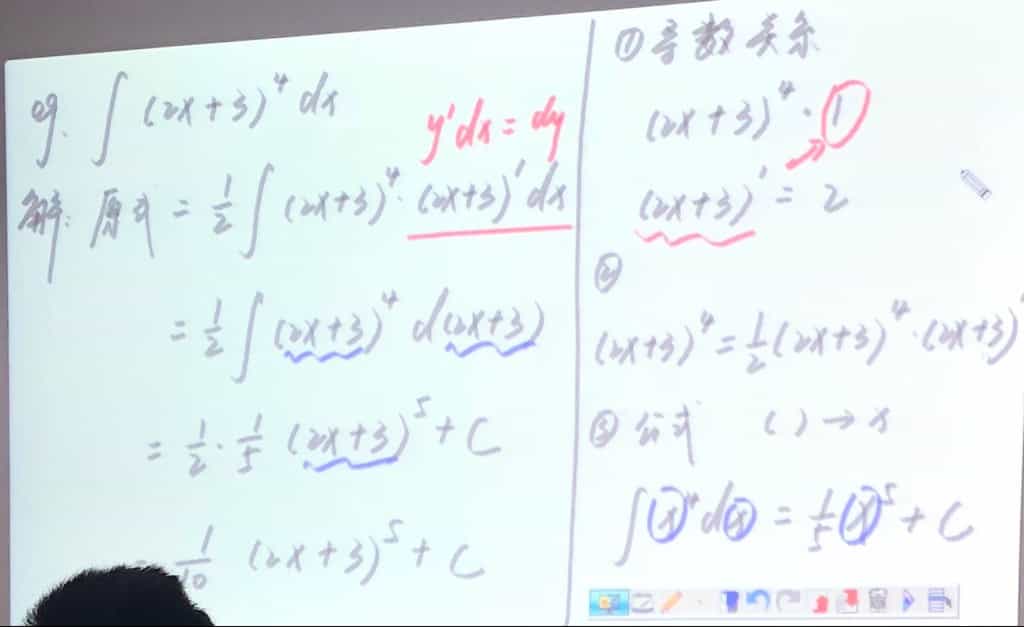 eg. ∫ (2x+3)⁴ dx
y'dx = dy
解: 原式 = 1/2 ∫ (2x+3)⁴ · (2x+3)' dx
= 1/2 ∫ (2x+3)⁴ d(2x+3)
= 1/2 · 1/5 (2x+3)⁵ + C
1/10 (2x+3)⁵ + C
① 导数关系
(2x+3)⁴ · 1
(2x+3)' = 2
②
(2x+3)⁴ = 1/2 (2x+3)⁴ · (2x+3)'
③ 公式 ( ) → x
∫ (x)⁴ d(x) = 1/5 (x)⁵ + C